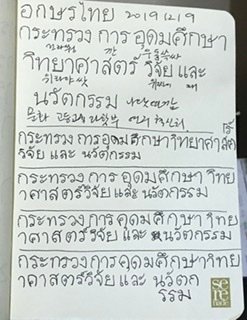 อักษรไทย 2019 12 9
กระทรวง การ อุดมศึกษา
วิทยาศาสตร์ วิจัย และ
นวัตกรรม
กระทรวง การอุดมศึกษาวิทยาศาสตร์
วิจัย และ นวัตกรรม
กระทรวง การ อุดมศึกษา วิทย
าศาสตร์วิจัยและ นวัตกรรม
กระทรวง การ อุดมศึกษา วิทย
าศาสตร์ วิจัย และ นวัตกรรม
กระทรวงการอุดมศึกษาวิทย
าศาสตร์วิจัย และ นวัตก
รรม
se
re
nade